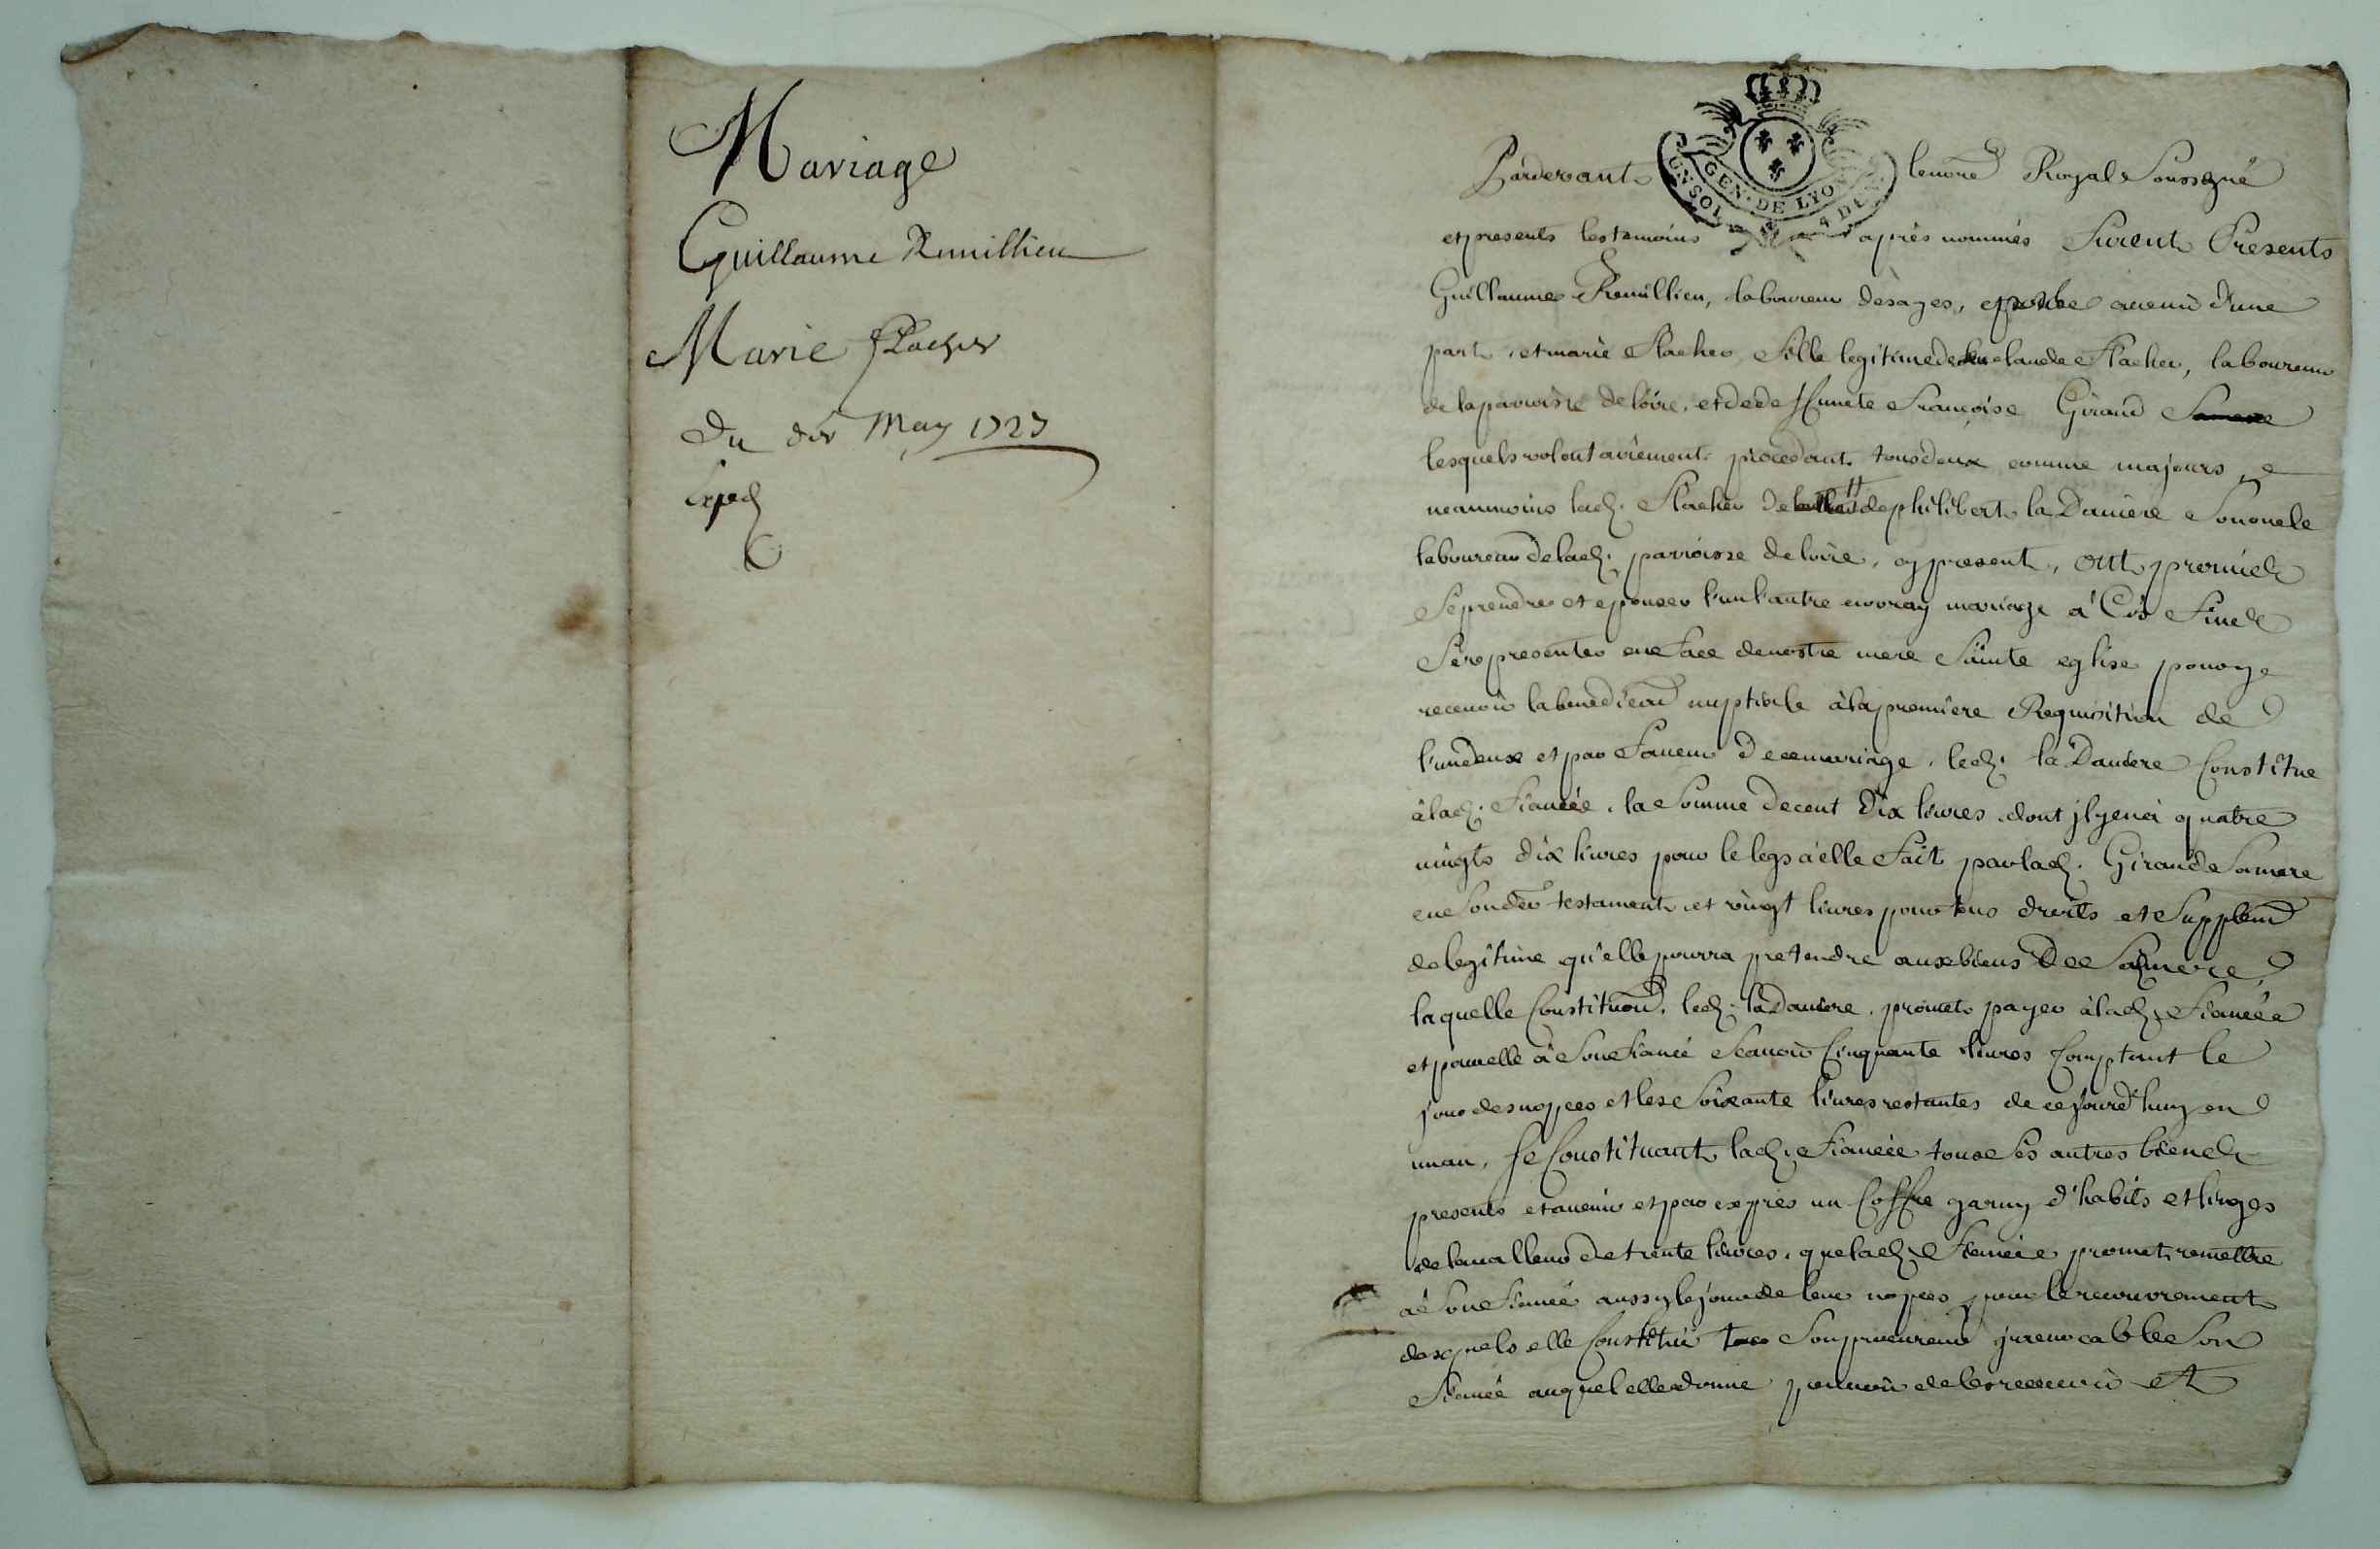 Mariage
Guillaume Remillieu
Marie Flacher
Du dix May 1727
Exped
GEN · DE LYON
UN SOL 4 D
Pardevant lenore Royal Soussigné
et presents les temoins apres nommés Furent Presents
Guillaume Remillieu, laboureur d'une
part, et marie Flacher Fille legitime de claude Flacher, laboureur
de la parroisse de loire, et de de hunete Francoise Giraud
lesquels volontairement procedant tous deux comme majeurs, e
neanmoins lad. Flacher de de philibert la Daniere Son oncle
laboureur de lad. parroisse de loire, cy present, ont promid
Se prendre et epouser l'un l'autre en vray mariage a Ces Fins
Se representer en Face de nostre mere Sainte eglise pour y
recevoir la benediction nuptiale à la premiere Requisition de
l'un deux et par Faveur de ce mariage, led. la Daniere Constitue
à lad. Fiancée, la Somme de cent Dix livres, dont il y en a quatre
vingts dix livres pour le legs a elle Fait par lad. Giraud Sa mere
en Son der testament et vingt livres pour tous droits et Supplem
de legitime qu'elle pourra pretendre aux biens De Sa mere
laquelle Constituon, led. la Daniere, promet payer à lad. Fiancée
et pour elle à Son Fiancé Scavoir Cinquante livres Comptant le
jour des nopces et les Soixante livres restantes de ce jourd'huy en
un an, Se Constituant lad. Fiancée tous Ses autres biens
presents et avenir et par expres un Coffre garny d'habits et linges
de la valleur de trente livres, que lad. Fiancée promet remettre
à Son Fiancé aussy le jour de leur nopces pour le recouvrement
desquels elle Constitue Son procureur irrevocable Son
Fiancé auquel elle donne pouvoir de les recevoir et